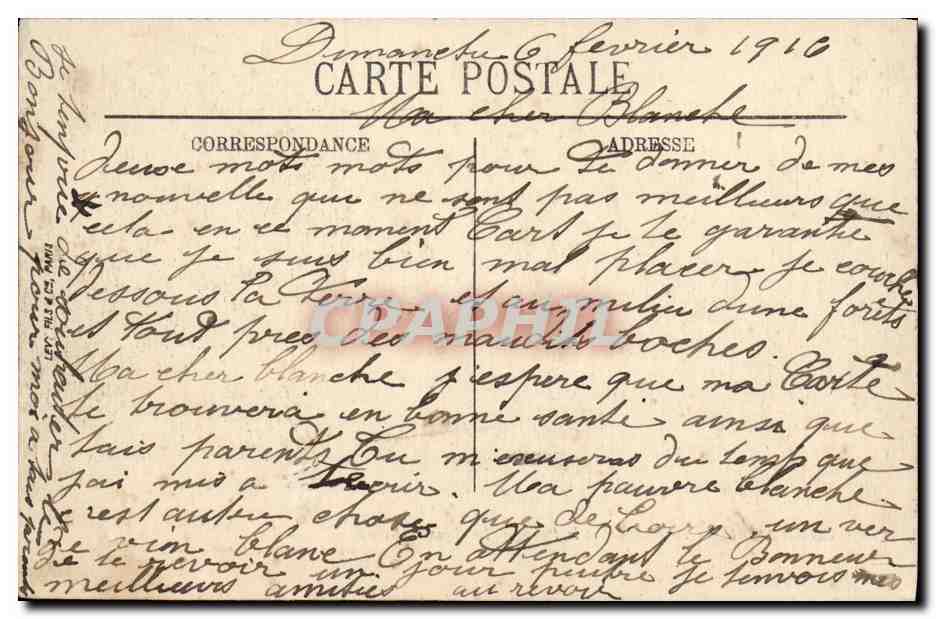 Dimanche 6 fevrier 1916
CARTE POSTALE
Ma cher Blanche
CORRESPONDANCE
ADRESSE
deuse mots mots pour te donner de mes
nouvelle que ne sont pas meilleurs que
cela en ce moment Cart je te garantie
que je suis bien mal placer je couche
dessous la terre et au milieu dune forets
et tout pres des maudits boches.
Ma cher blanche j'espere que ma Carte
te trouvera en bonne santé ainsi que
tais parents Tu m'excuseras du temps que
jai mis a ecrir. Ma pauvre blanche
c'est autre chose que de boire un ver
de vin blanc En attendant le Bonneur
de te revoir un jour peutre je tenvois mes
meilleurs amities au revoir
Bonjour pour moi a tais parents
CPAPHIL